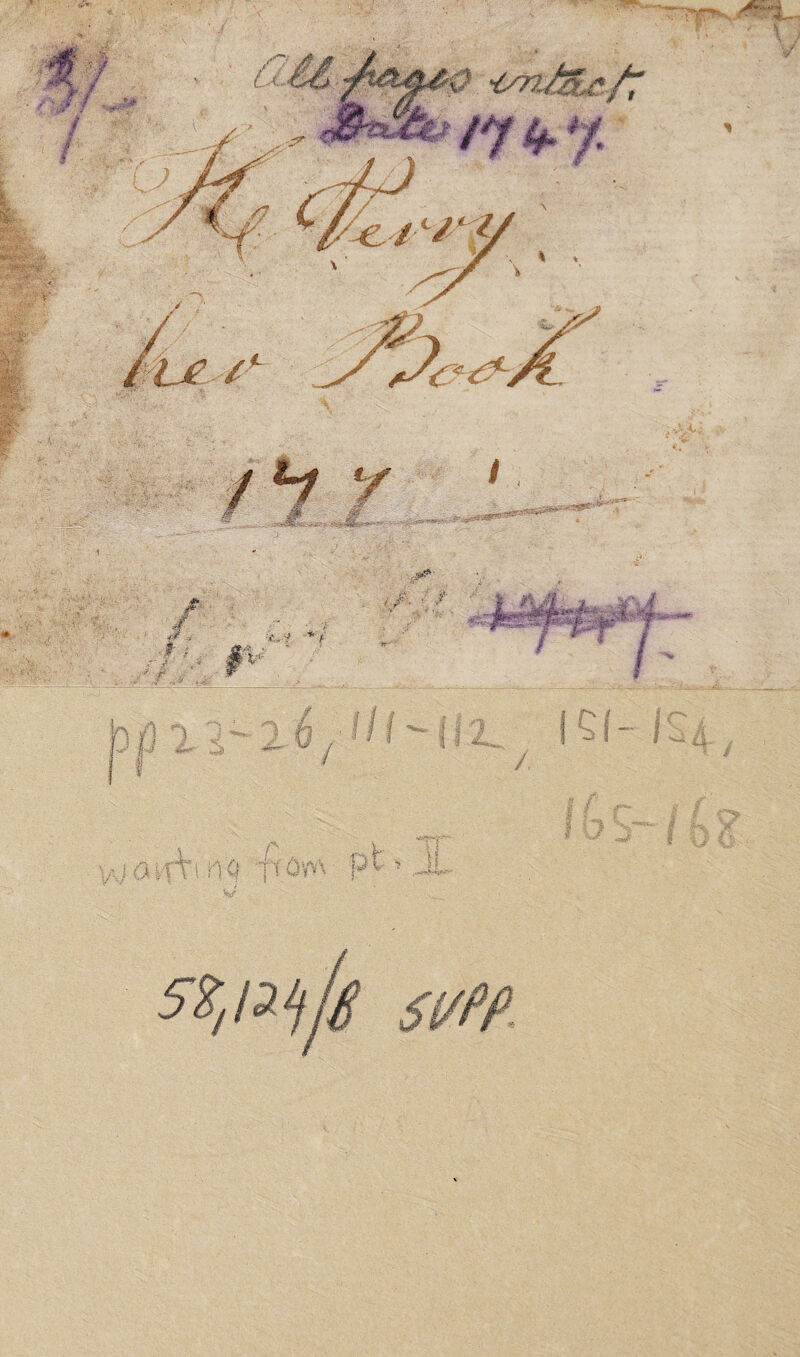 3/-
All pages intact.
Date 1747.
K Perry
her Book
177 1
1747.
pp 23-26, 111-112, 151-154,
165-168
wanting from pt. II
58,124/B SUPP.